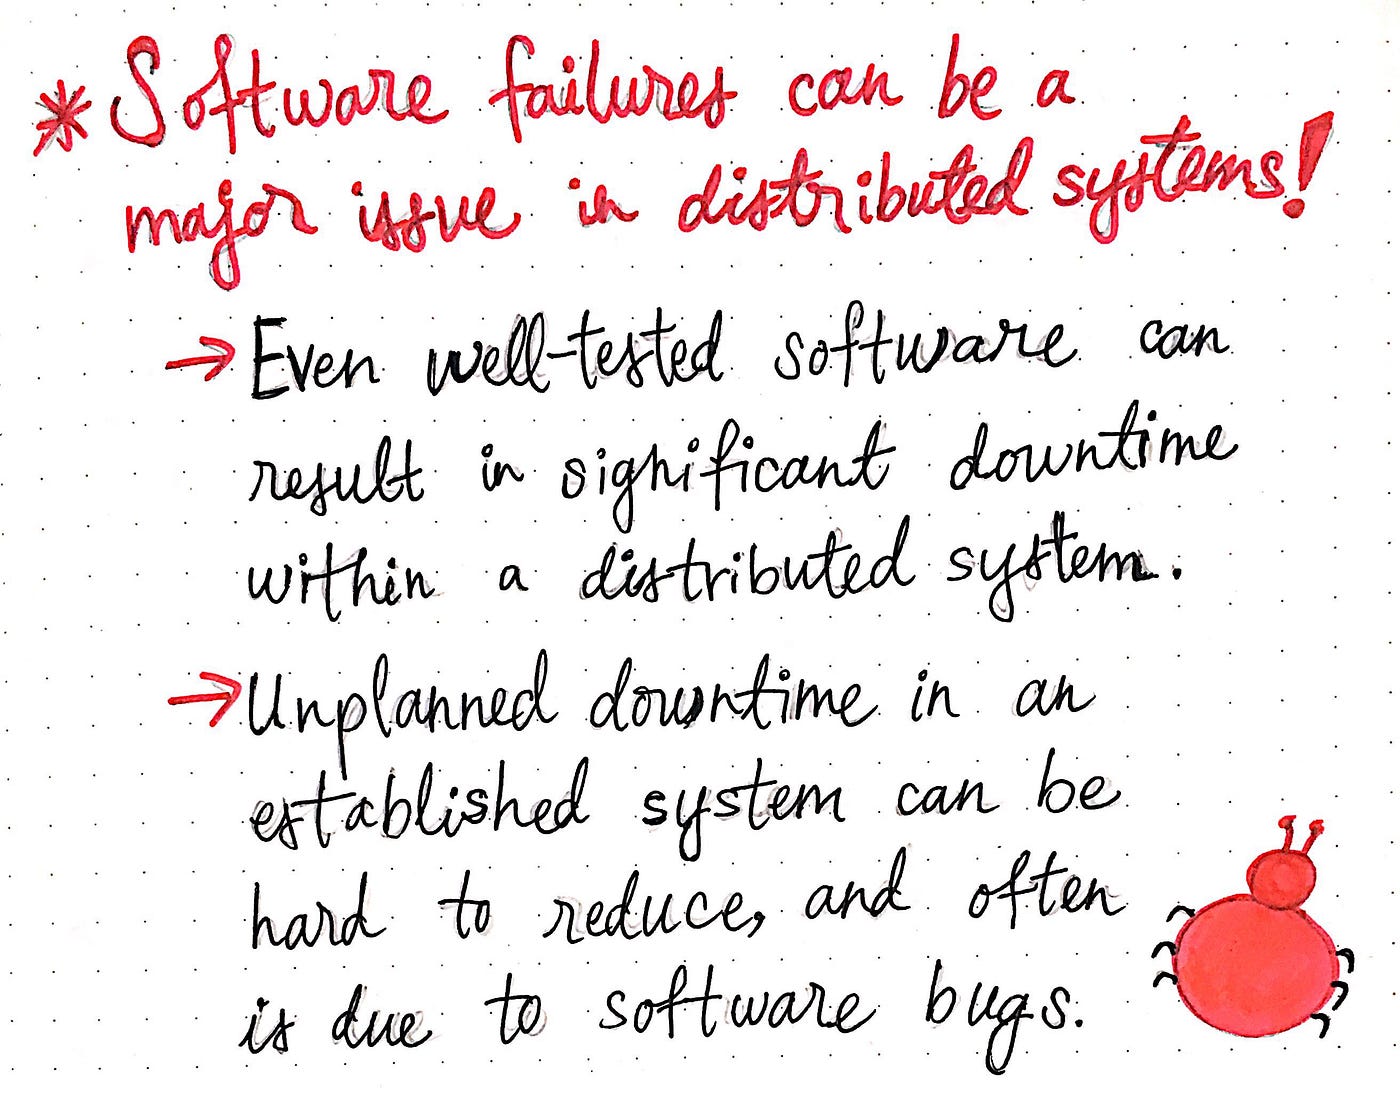 * Software failures can be a
major issue in distributed systems!
→ Even well-tested software can
result in significant downtime
within a distributed system.
→ Unplanned downtime in an
established system can be
hard to reduce, and often
is due to software bugs.